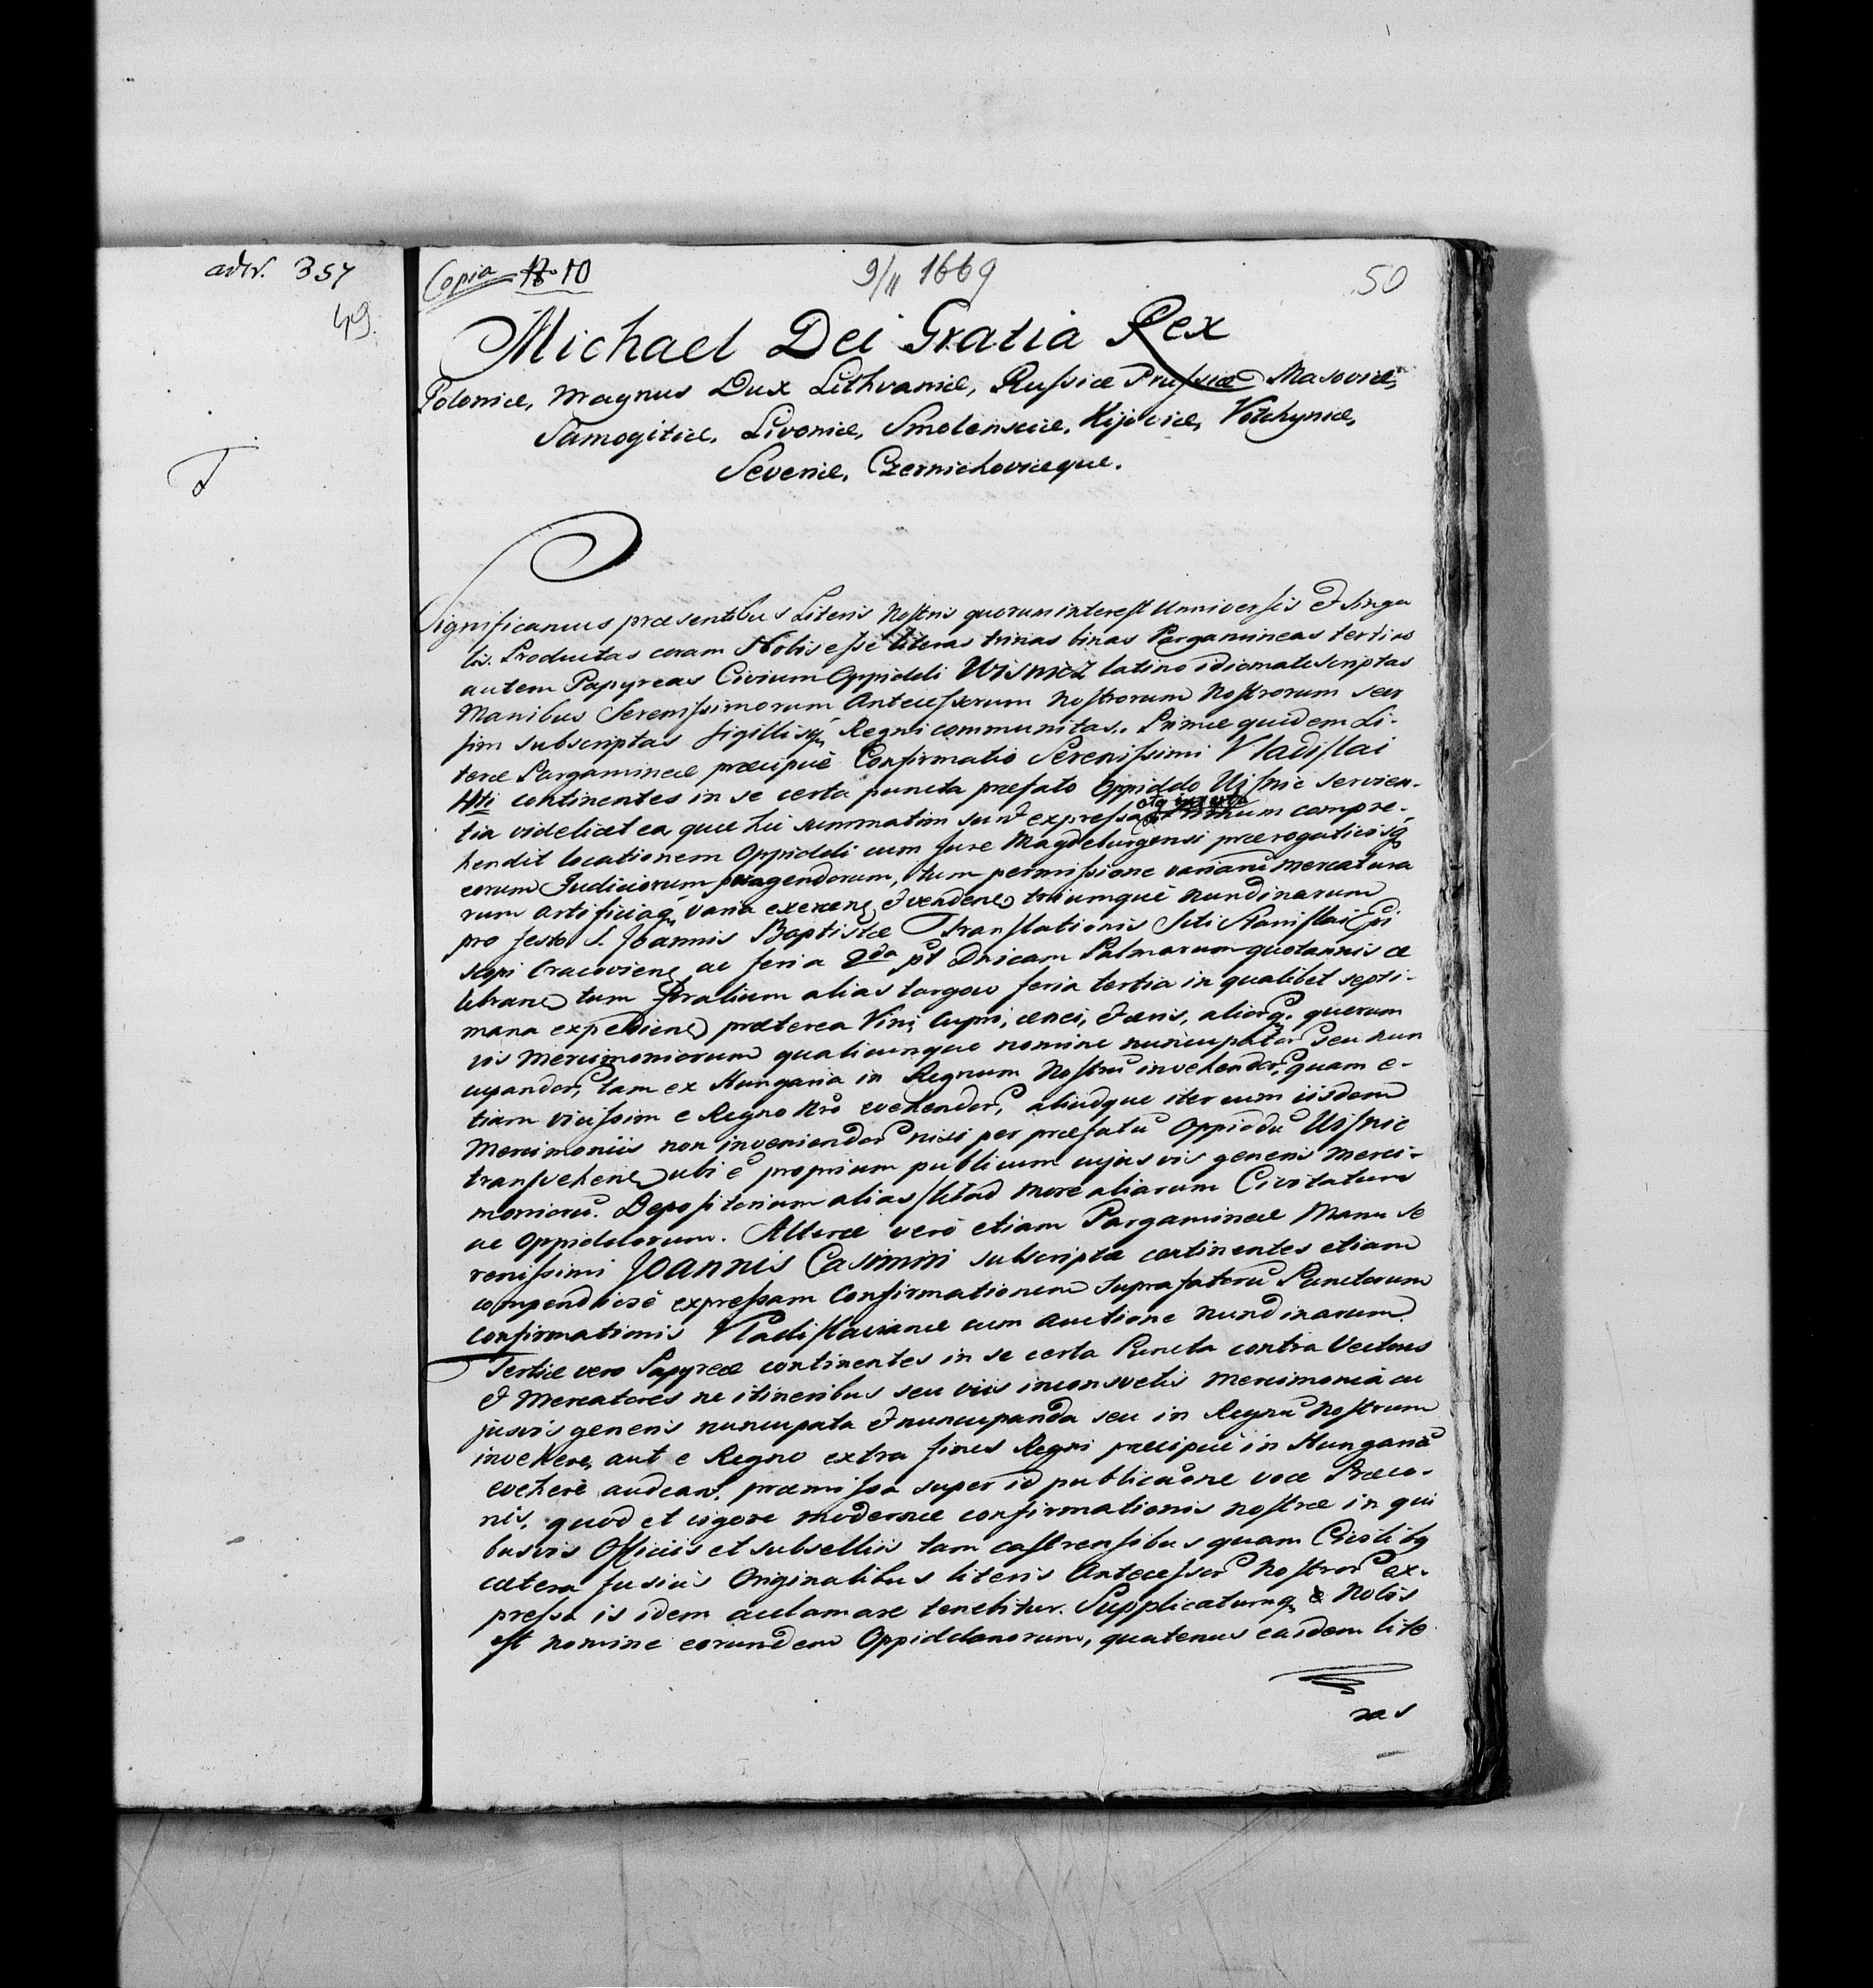 adN. 357
49.
Copia No 10
9/11 1669
50
Michael Dei Gratia Rex
Poloniæ, Magnus Dux Lithvaniæ, Russiæ Prussiæ Masoviæ,
Samogitiæ, Livoniæ, Smolensciæ, Kijoviæ, Volhyniæ,
Severiæ, Czernichoviæque.
Significamus præsentibus Literis Nostris quorum interest Universis et Singu
lis. Productas coram Nobis esse literas trinas binas Pargamineas tertias
autem Papyreas Civium Oppidi Wisnicz latino idiomate scriptas
Manibus Serenissimorum Antecessorum Nostrorum Nostrorum seor
sim subscriptas sigillisq Regni communitas. Primæ quidem Li-
teræ Pargamineæ præcipuè Confirmatio Serenissimi Vladislai
4ti continentes in se certa puncta præfato Oppido Wisnic servien-
tia videlicet ea quæ hic summatim sunt expressa primum compre-
hendit locationem Oppidi cum Jure Magdeburgensi prærogativisq
eorum Judiciorum peragendorum, tum permissione variarū mercatura
rum artificiaq varia exercen et venden triumquè nundinarum
pro festo S. Joannis Baptistæ Translationis Scti Stanislai Epi
scopi Cracovien ac feria 2da pt Dnicam Palmarum quotannis ce
lebran tum foralium alias targow feria tertia in qualibet septi-
mana expedien præterea Vini, cupri, ænei, et æris, aliorq. quorum
vis Mercimoniorum qualicunque nomine nuncupator seu nun
cupandor, tam ex Hungaria in Regnum Nostrū invehendor, quam e-
tiam vicissim e Regno Nrō evehendor, aliudque iter cum iisdem
Mercimoniis non inveniendor nisi per præfatū Oppidū Wisnic
transvehen ubi ē proprium publicum cujusvis generis Merci-
moniorū. Depositorium alias sklad more aliarum Civitatum
ac Oppidorum. Alteræ verò etiam Pargamineæ Manu Se
renissimi Joannis Casimiri subscriptæ continentes etiam
compendiosè expressam Confirmationem suprafatorū Punctorum
confirmationis Vladislavianæ cum auctione nundinarum.
Tertiæ vero Papyreæ continentes in se certa Puncta contra Vectores
et Mercatores ne itineribus seu viis inconsvetis mercimonia cu
jusvis generis nuncupata et nuncupanda seu in Regnū Nostrum
invehere, aut e Regno extra fines Regni præcipuè in Hungariā
evehere audean. præmissa super id publicaone voce Præco-
nis, quod et vigore modernæ confirmationis nostræ in qui
busvis Officiis et subselliis tam castrensibus quam Civilibq
cætera fusiùs Originalibus literis Antecessor Nostror ex-
pressa is idem acclamare tenebitur. Supplicatumq Nobis
est nomine eorundem Oppidanorum, quatenus easdem lite
ras